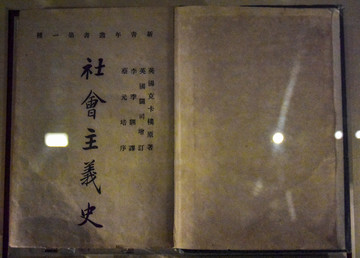 新青年叢書第一種
英國克卡樸原著
英國辟司增訂
李季翻譯
蔡元培序
社會主義史